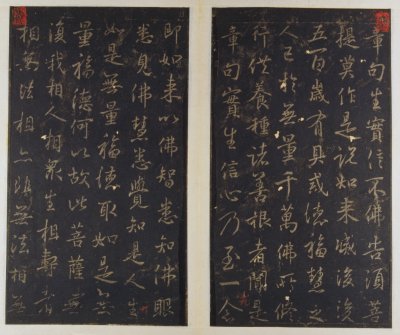 章句生實信不佛告須菩
提莫作是說如来滅後後
五百歲有具戒德福慧之
人已於無量千萬佛所修
行供養種諸善根者聞是
章句實生信心乃至一念
即如来以佛智悉知佛眼
悉見佛慧悉覺知是人生
如是無量福德取如是無
量福德何以故此菩薩無
復我相人相眾生相壽者
相無法相亦非無法相